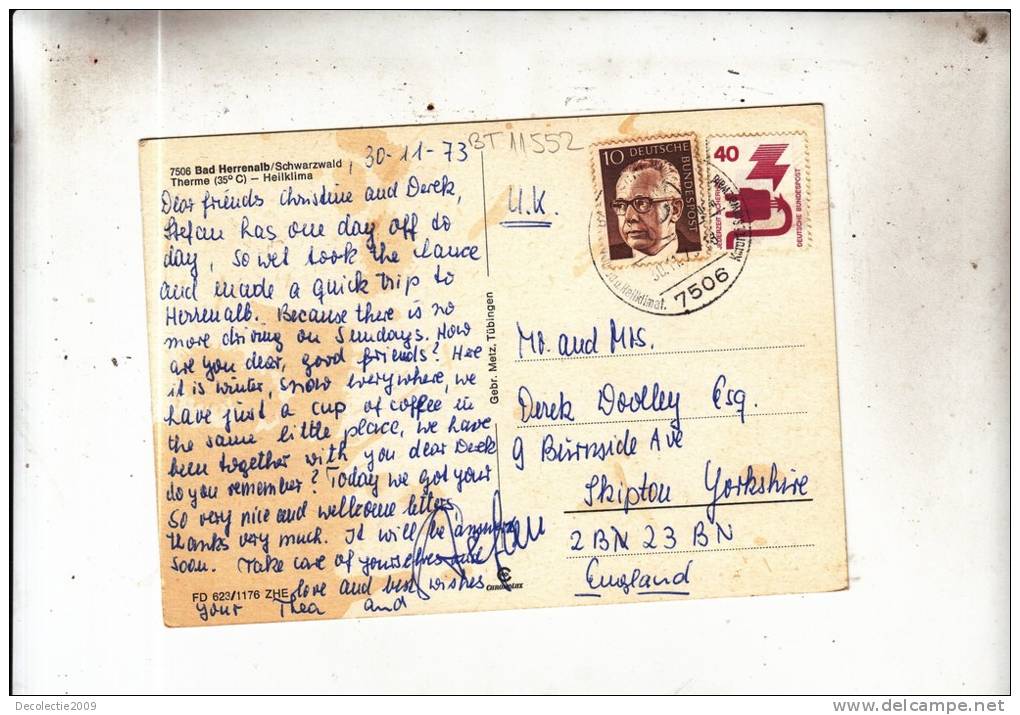 BT 11552
7506 Bad Herrenalb/Schwarzwald
Therme (35° C) – Heilklima
30-11-73
Dear friends Christine and Derek,
Stefan has one day off to
day, so wet took the chance
and made a quick trip to
Herrenalb. Because there is no
more driving on Sundays. How
are you dear, good friends? Here
it is winter, snow everywhere, we
have just a cup of coffee in
the same little place, we have
been together with you dear Derek
do you remember? Today we got your
so very nice and wellcome letters
thanks very much. It will be answered
soon. Take care of yourselfes and
love and best wishes
your Thea and
Stefan
FD 623/1176 ZHE
Gebr. Metz, Tübingen
CHROMOLUX
U.K.
10 DEUTSCHE BUNDESPOST
40
JEDERZEIT SICHERHEIT
DEUTSCHE BUNDESPOST
30.11.73
u. Heilklimat.
7506
Mr. and Mrs.
Derek Doolley Esq.
9 Burnside Ave
Skipton Yorkshire
2 BN 23 BN
England
Decolectie2009
www.delcampe.net